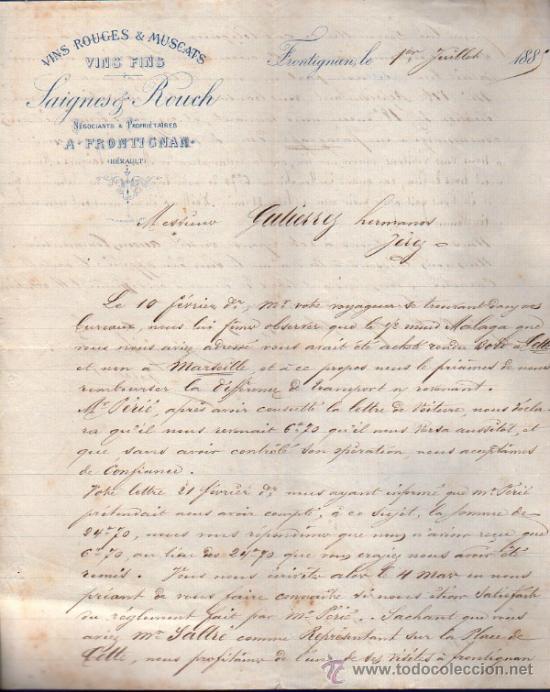 VINS ROUGES & MUSCATS
VINS FINS
Saignes & Rouch
NÉGOCIANTS & PROPRIÉTAIRES
A FRONTIGNAN
(HÉRAULT)
Frontignan, le 1er Juillet 1885
Messieurs Gutierrez hermanos
Jerez
Le 10 février dr, Mr votre voyageur se trouvant dans nos
bureaux, nous lui fîmes observer que le vin muid Malaga que
vous nous aviez adressé nous avait été acheté rendu à Cette
et non à Marseille, et à ce propos nous le priâmes de nous
rembourser la différence de transport y revenant.
Mr Périé, après avoir consulté la lettre de voiture, nous décla
ra qu'il nous revenait 6f 70 qu'il nous versa aussitôt, et
que sans avoir contrôlé son opération nous acceptâmes
de Confiance.
Votre lettre 21 février dr nous ayant informé que Mr Périé
prétendait nous avoir compté, à ce sujet, la somme de
24f 70, nous vous répondîmes que nous n'avions reçu que
6f 70, au lieu des 24f 70 que vous croyiez nous avoir été
remis. Vous nous écrivîtes alors le 4 Mars en nous
priant de vous faire connaître si nous étions Satisfaits
du règlement fait par Mr Périé. Sachant que vous
aviez Mr Sallié comme Représentant sur la Place de
Cette, nous profitâmes de l'une de ses visites à frontignan
todocoleccion
www.todocoleccion.net